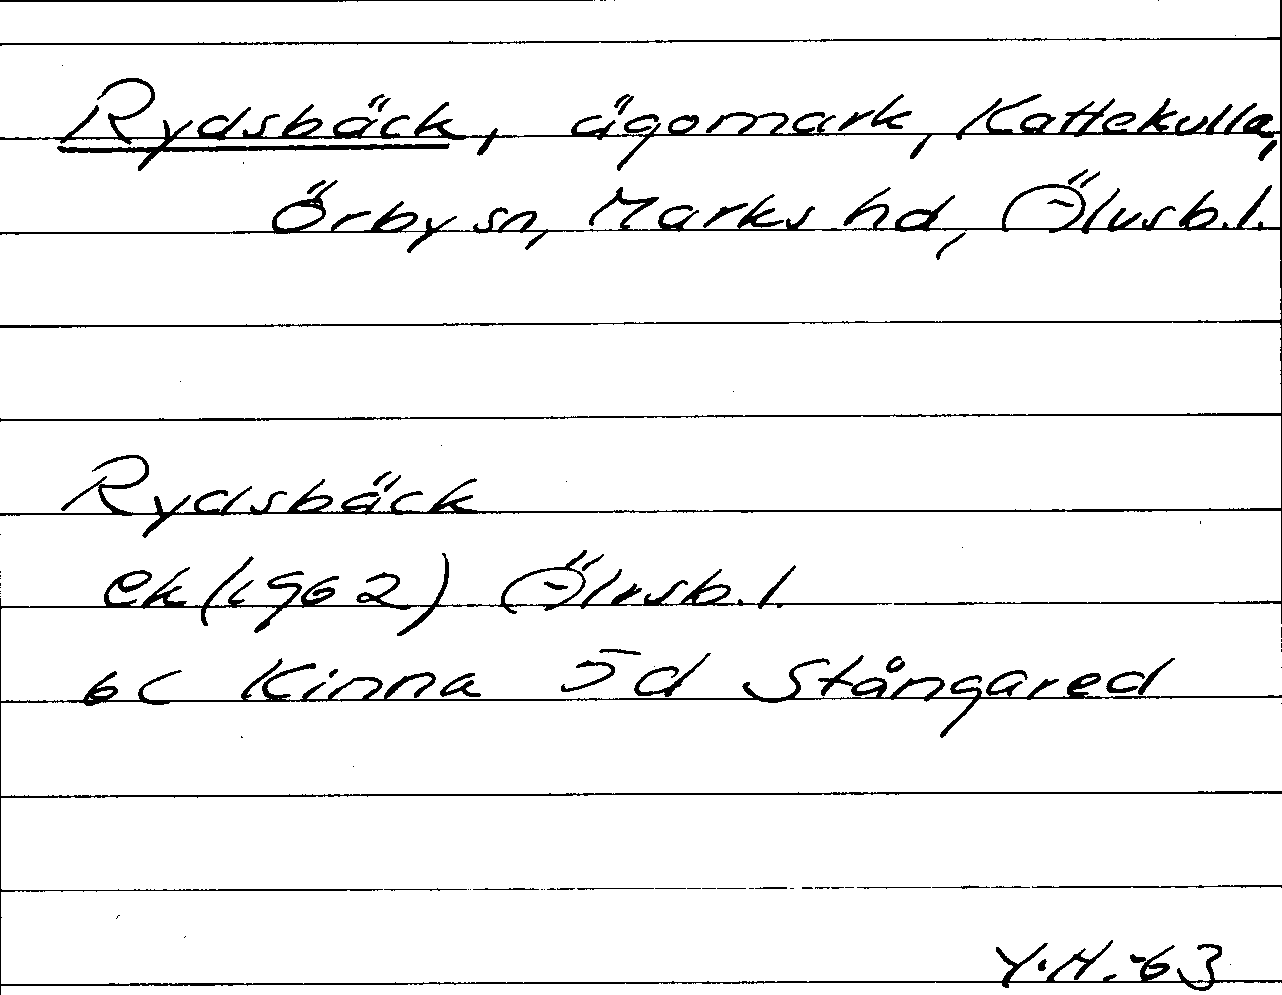 Rydsbäck, ägomark, Kattekulla,
Örby sn, Marks hd, Älvsb.l.
Rydsbäck
ek (1962) Älvsb.l.
6c Kinna 5d Stångared
Y.H.-63